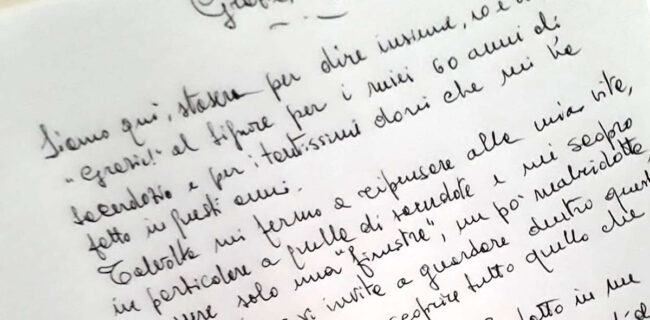 Siamo qui, stasera per dire insieme, io e
"Grazie!" al Signore per i miei 60 anni di
sacerdozio e per i tantissimi doni che mi ha
fatto in questi anni.
Talvolta mi fermo a ripensare alla mia vita,
in particolare a quella di sacerdote e mi scopro
solo una "finestra", un po' malridotta,
invita a guardare dentro
scoprire tutto quello che
in un